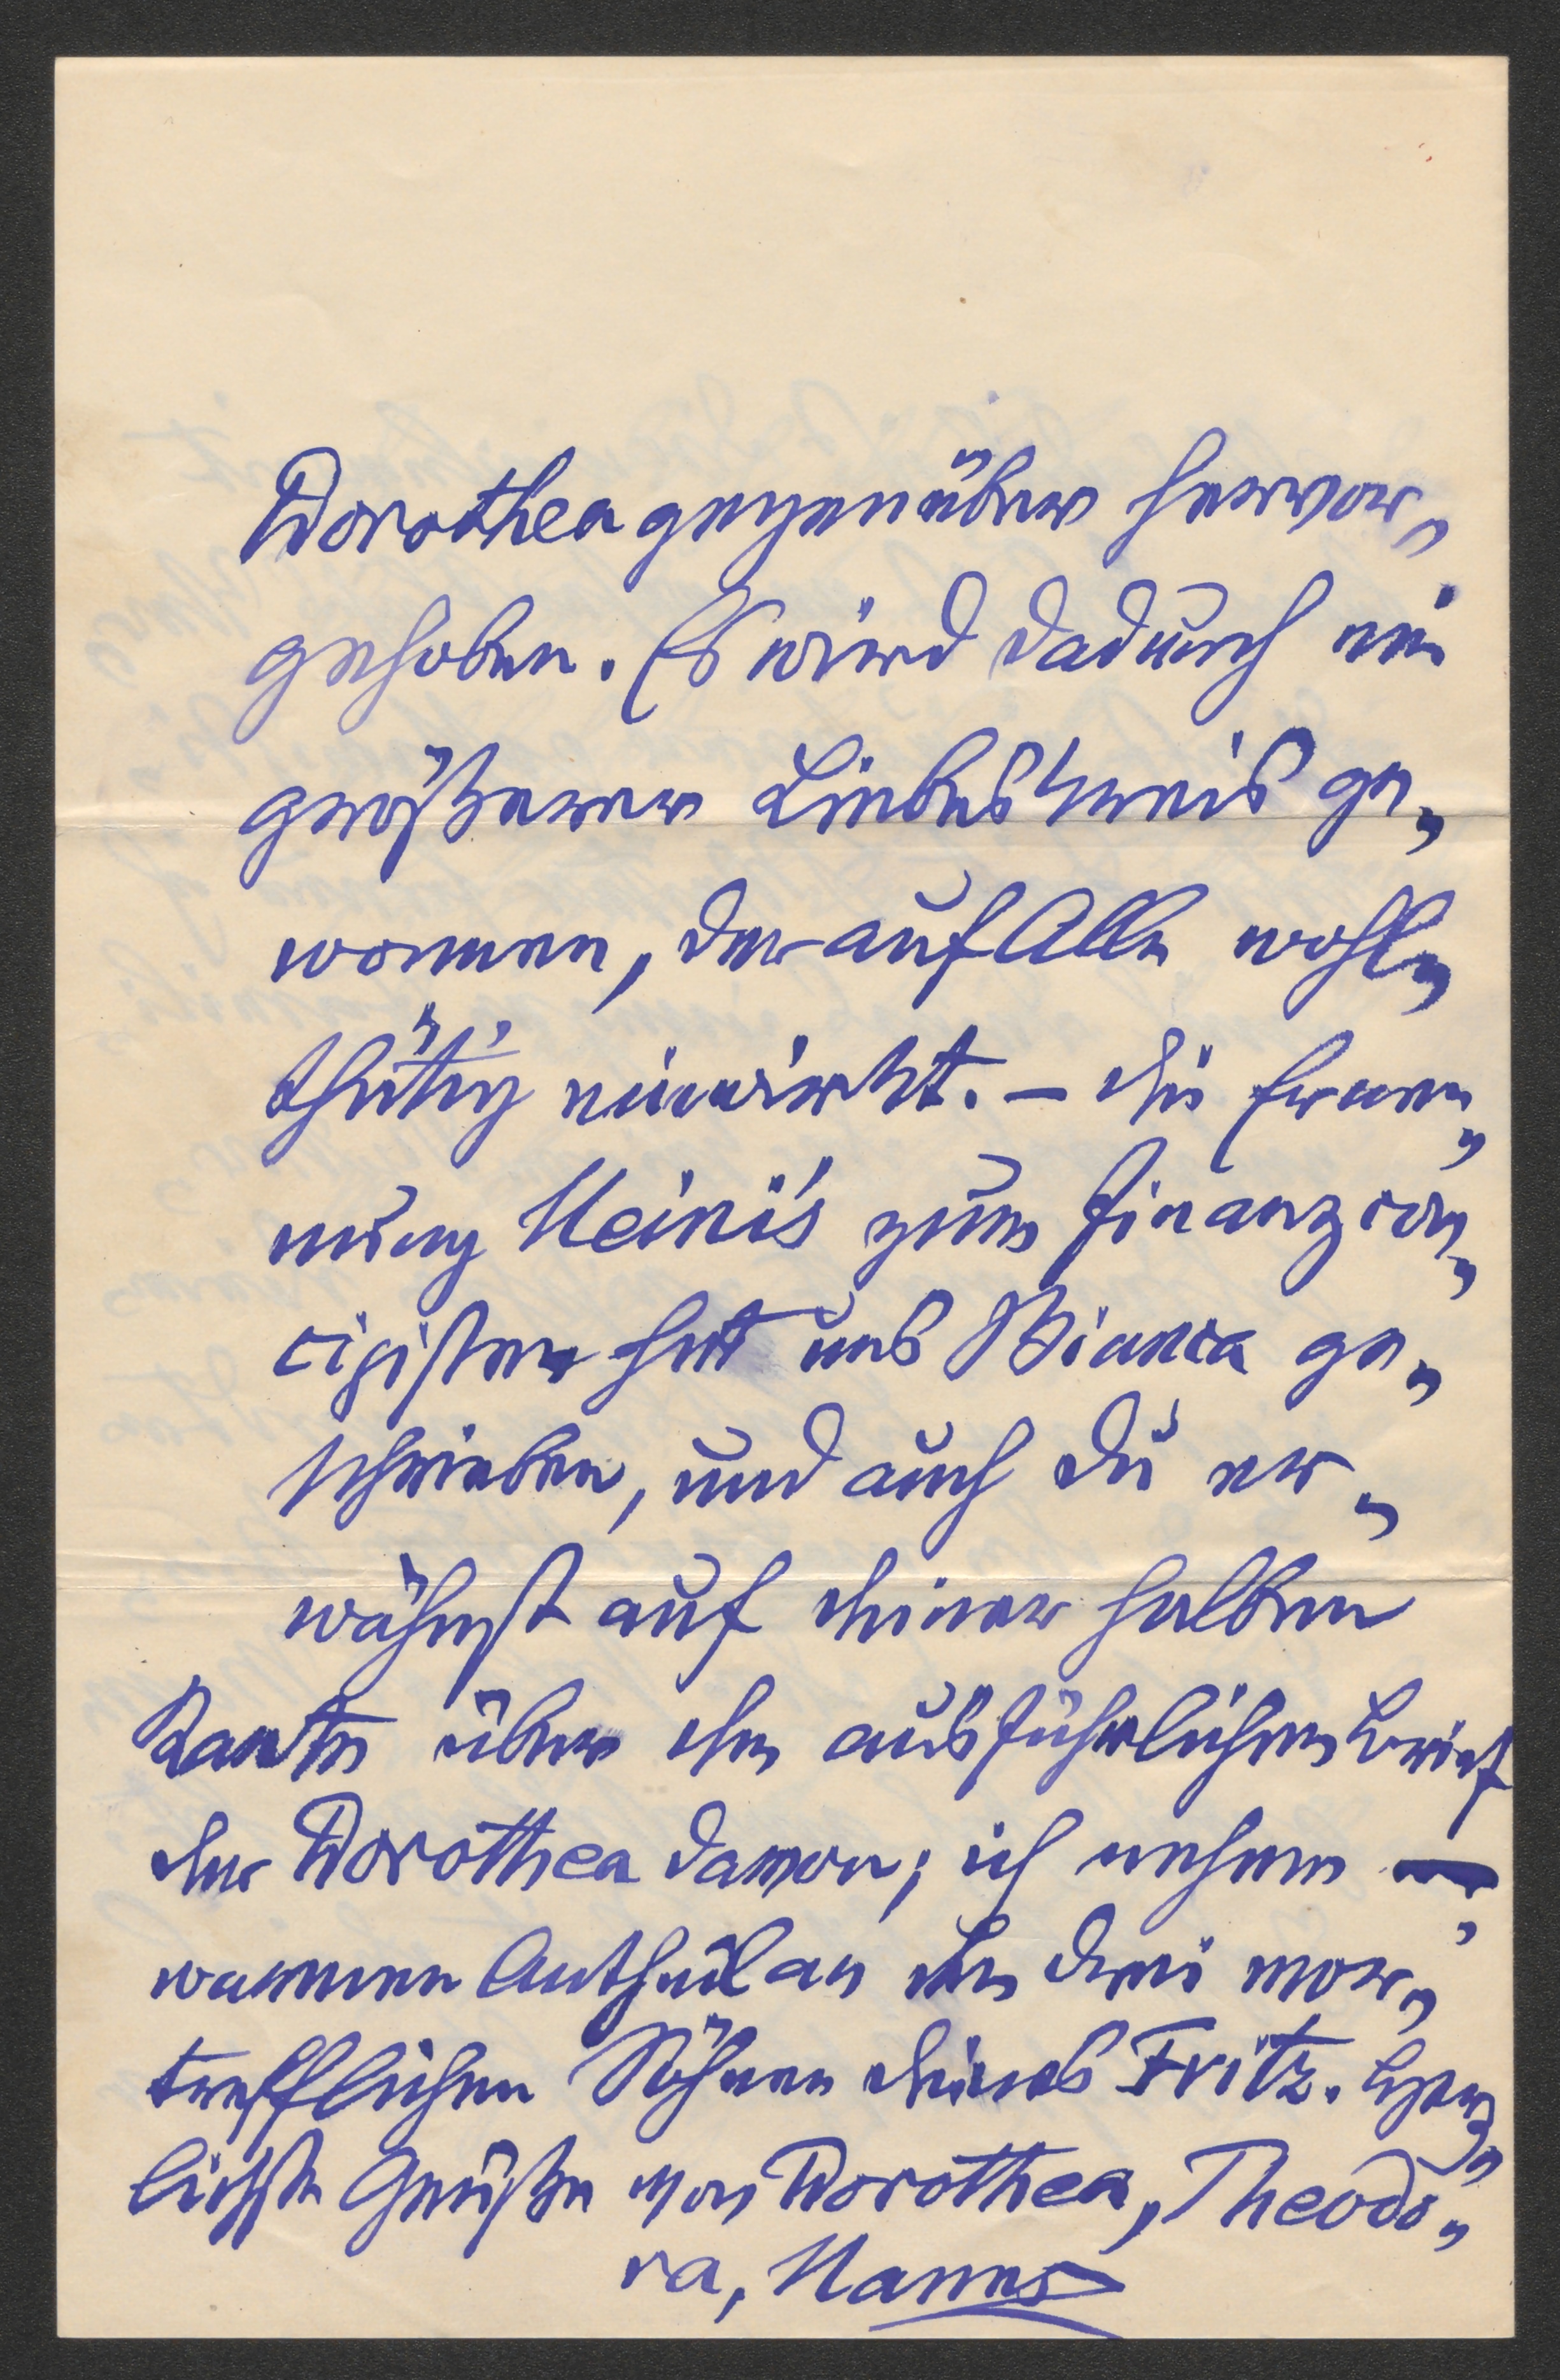 Dorothea gegenüber hervor„
gehoben. Es wird dadurch ein
größerer Liebeskreis ge„
wonnen, der auf Alle wohl„
thätig einwirkt. – Die Ernen„
nung Heini's zum Finanzcon„
cipisten hat uns Bianca ge„
schrieben, und auch Du er„
wähnst auf Deiner halben
Karte über den ausführlichen Brief
der Dorothea davon; ich nehme
warmen Antheil an den drei vor„
trefflichen Söhnen Deines Fritz. Herz„
lichste Grüße von Dorothea, Theodo„
ra, Hanns